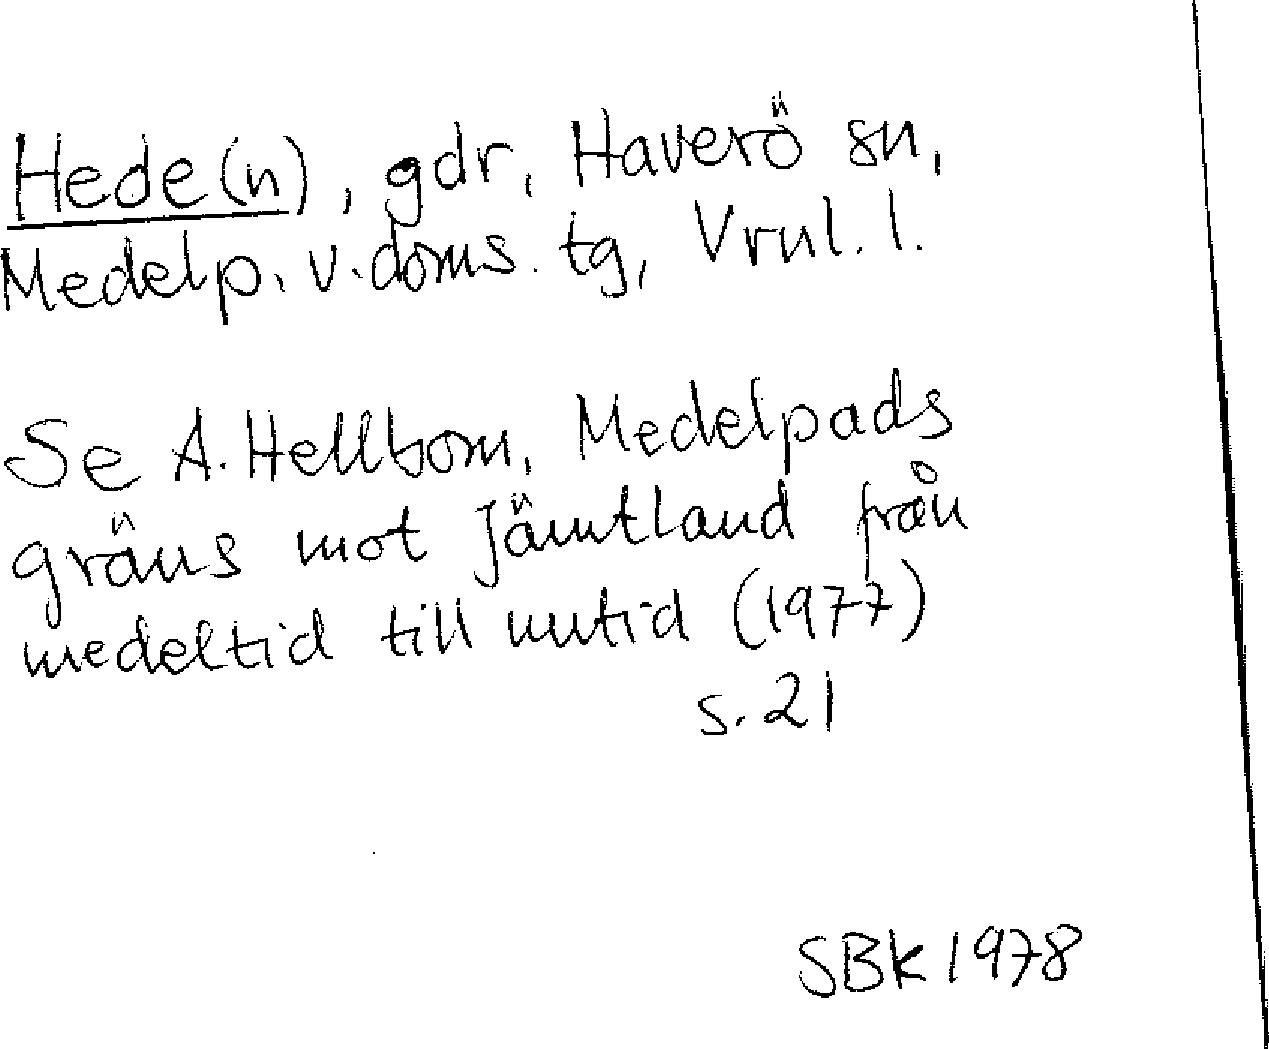 Hede(n), gdr, Haverö sn,
Medelp. v. doms. tg, Vrnl. l.
Se A. Hellbom, Medelpads
gräns mot Jämtland från
medeltid till nutid (1977)
s. 21
SBk 1978